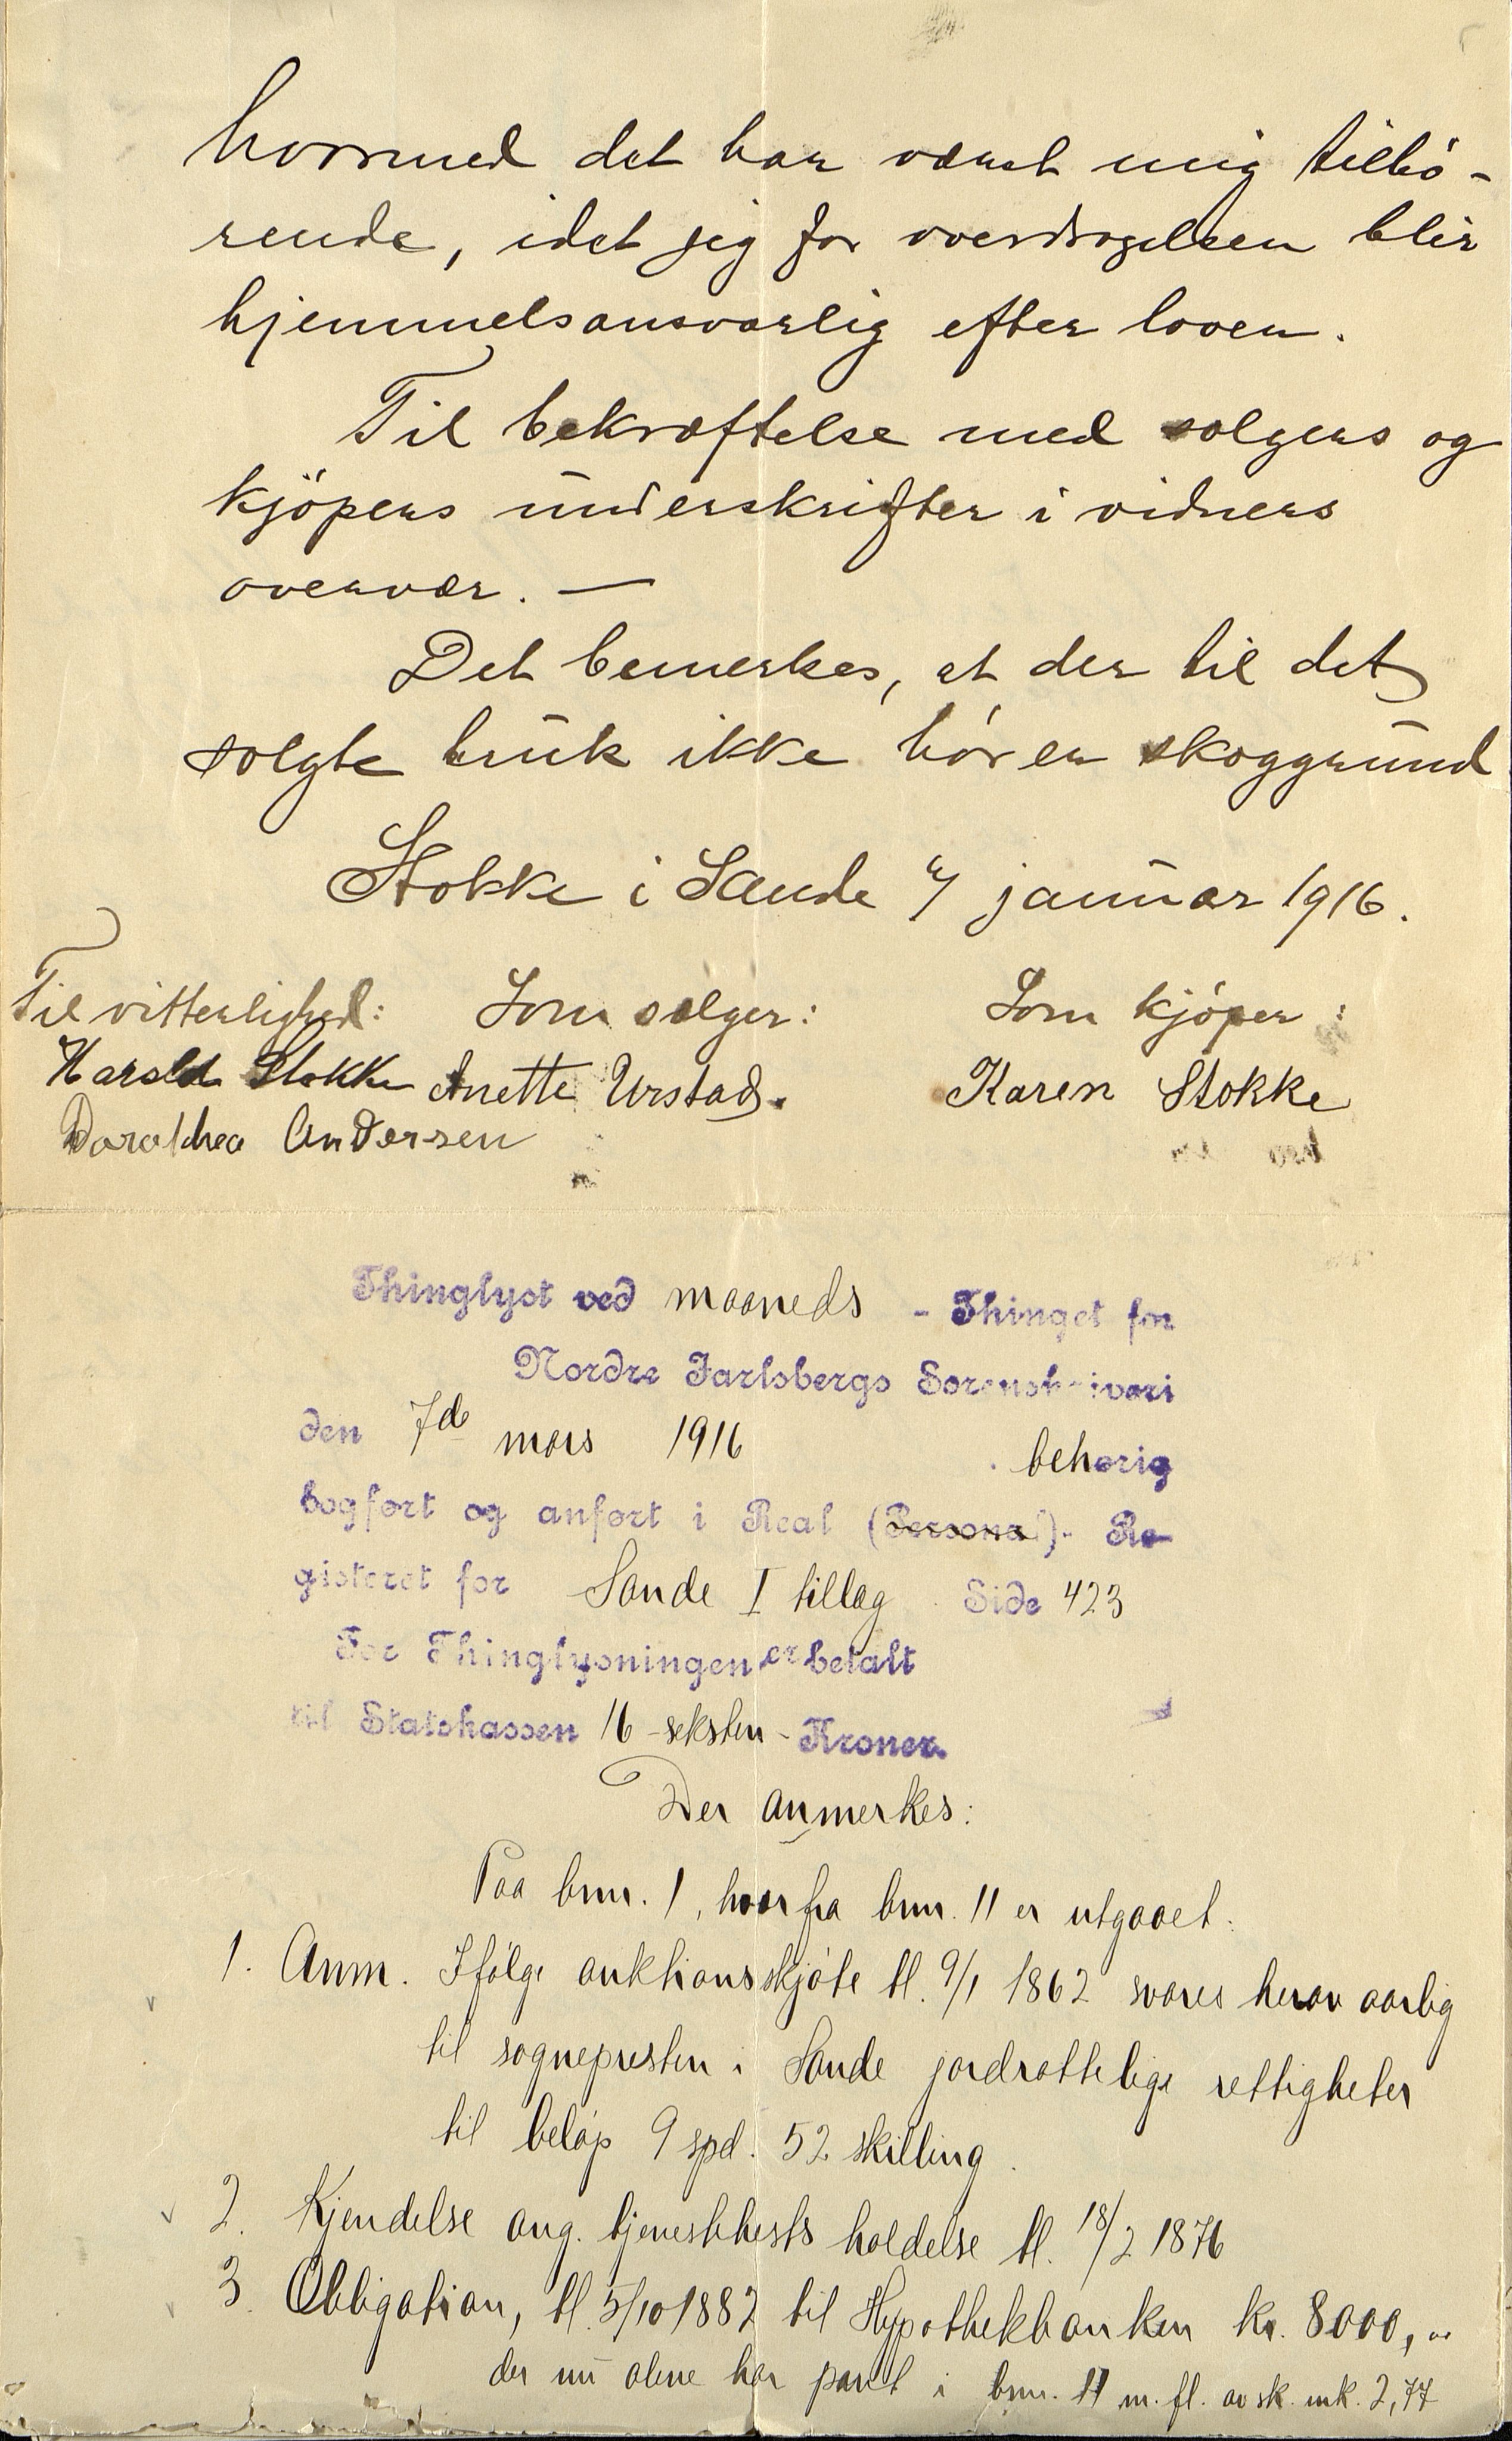 hvormed det har været mig tilhö-
rende, idet jeg for overdragelsen blir
hjemmelsansvarlig efter loven.
Til bekræftelse med sælgers og
kjöpers underskrifter i vidners
overvær. —
Det bemerkes, at der til det
solgte bruk ikke hörer skoggrund
Stokke i Sande januar 1916.
Til vitterlighed: Som sælger: Som kjöper:
Harald Stokke Anette Urstad. Karen Stokke
Dorothea Andersen
Thinglyst ved maaneds - Thinget for
Nordre Jarlsbergs Sorenskriveri
den 7de mars 1916 behørig
bogført og anført i Real (Personal)- Re-
gisteret for Sande I tillæg Side 423
For Thinglysningen er betalt
til Statskassen 16 - seksten - Kroner.
Der anmerkes:
Paa brnr. 1, hvorfra brnr. 11 er utgaaet:
1. Anm. Ifølge auktionsskjøte tl. 9/1 1862 svares herav aarlig
til sognepresten i Sande jordrottelige rettigheter
til beløp 9 spd. 52 skilling.
2. Kjendelse ang. tjenestehests holdelse tl. 18/2 1876
3. Obligation, tl. 5/10 1882 til Hypothekbanken kr. 8000,"
der nu alene har pant i brnr. 11 m. fl. av sk. mk. 2,77